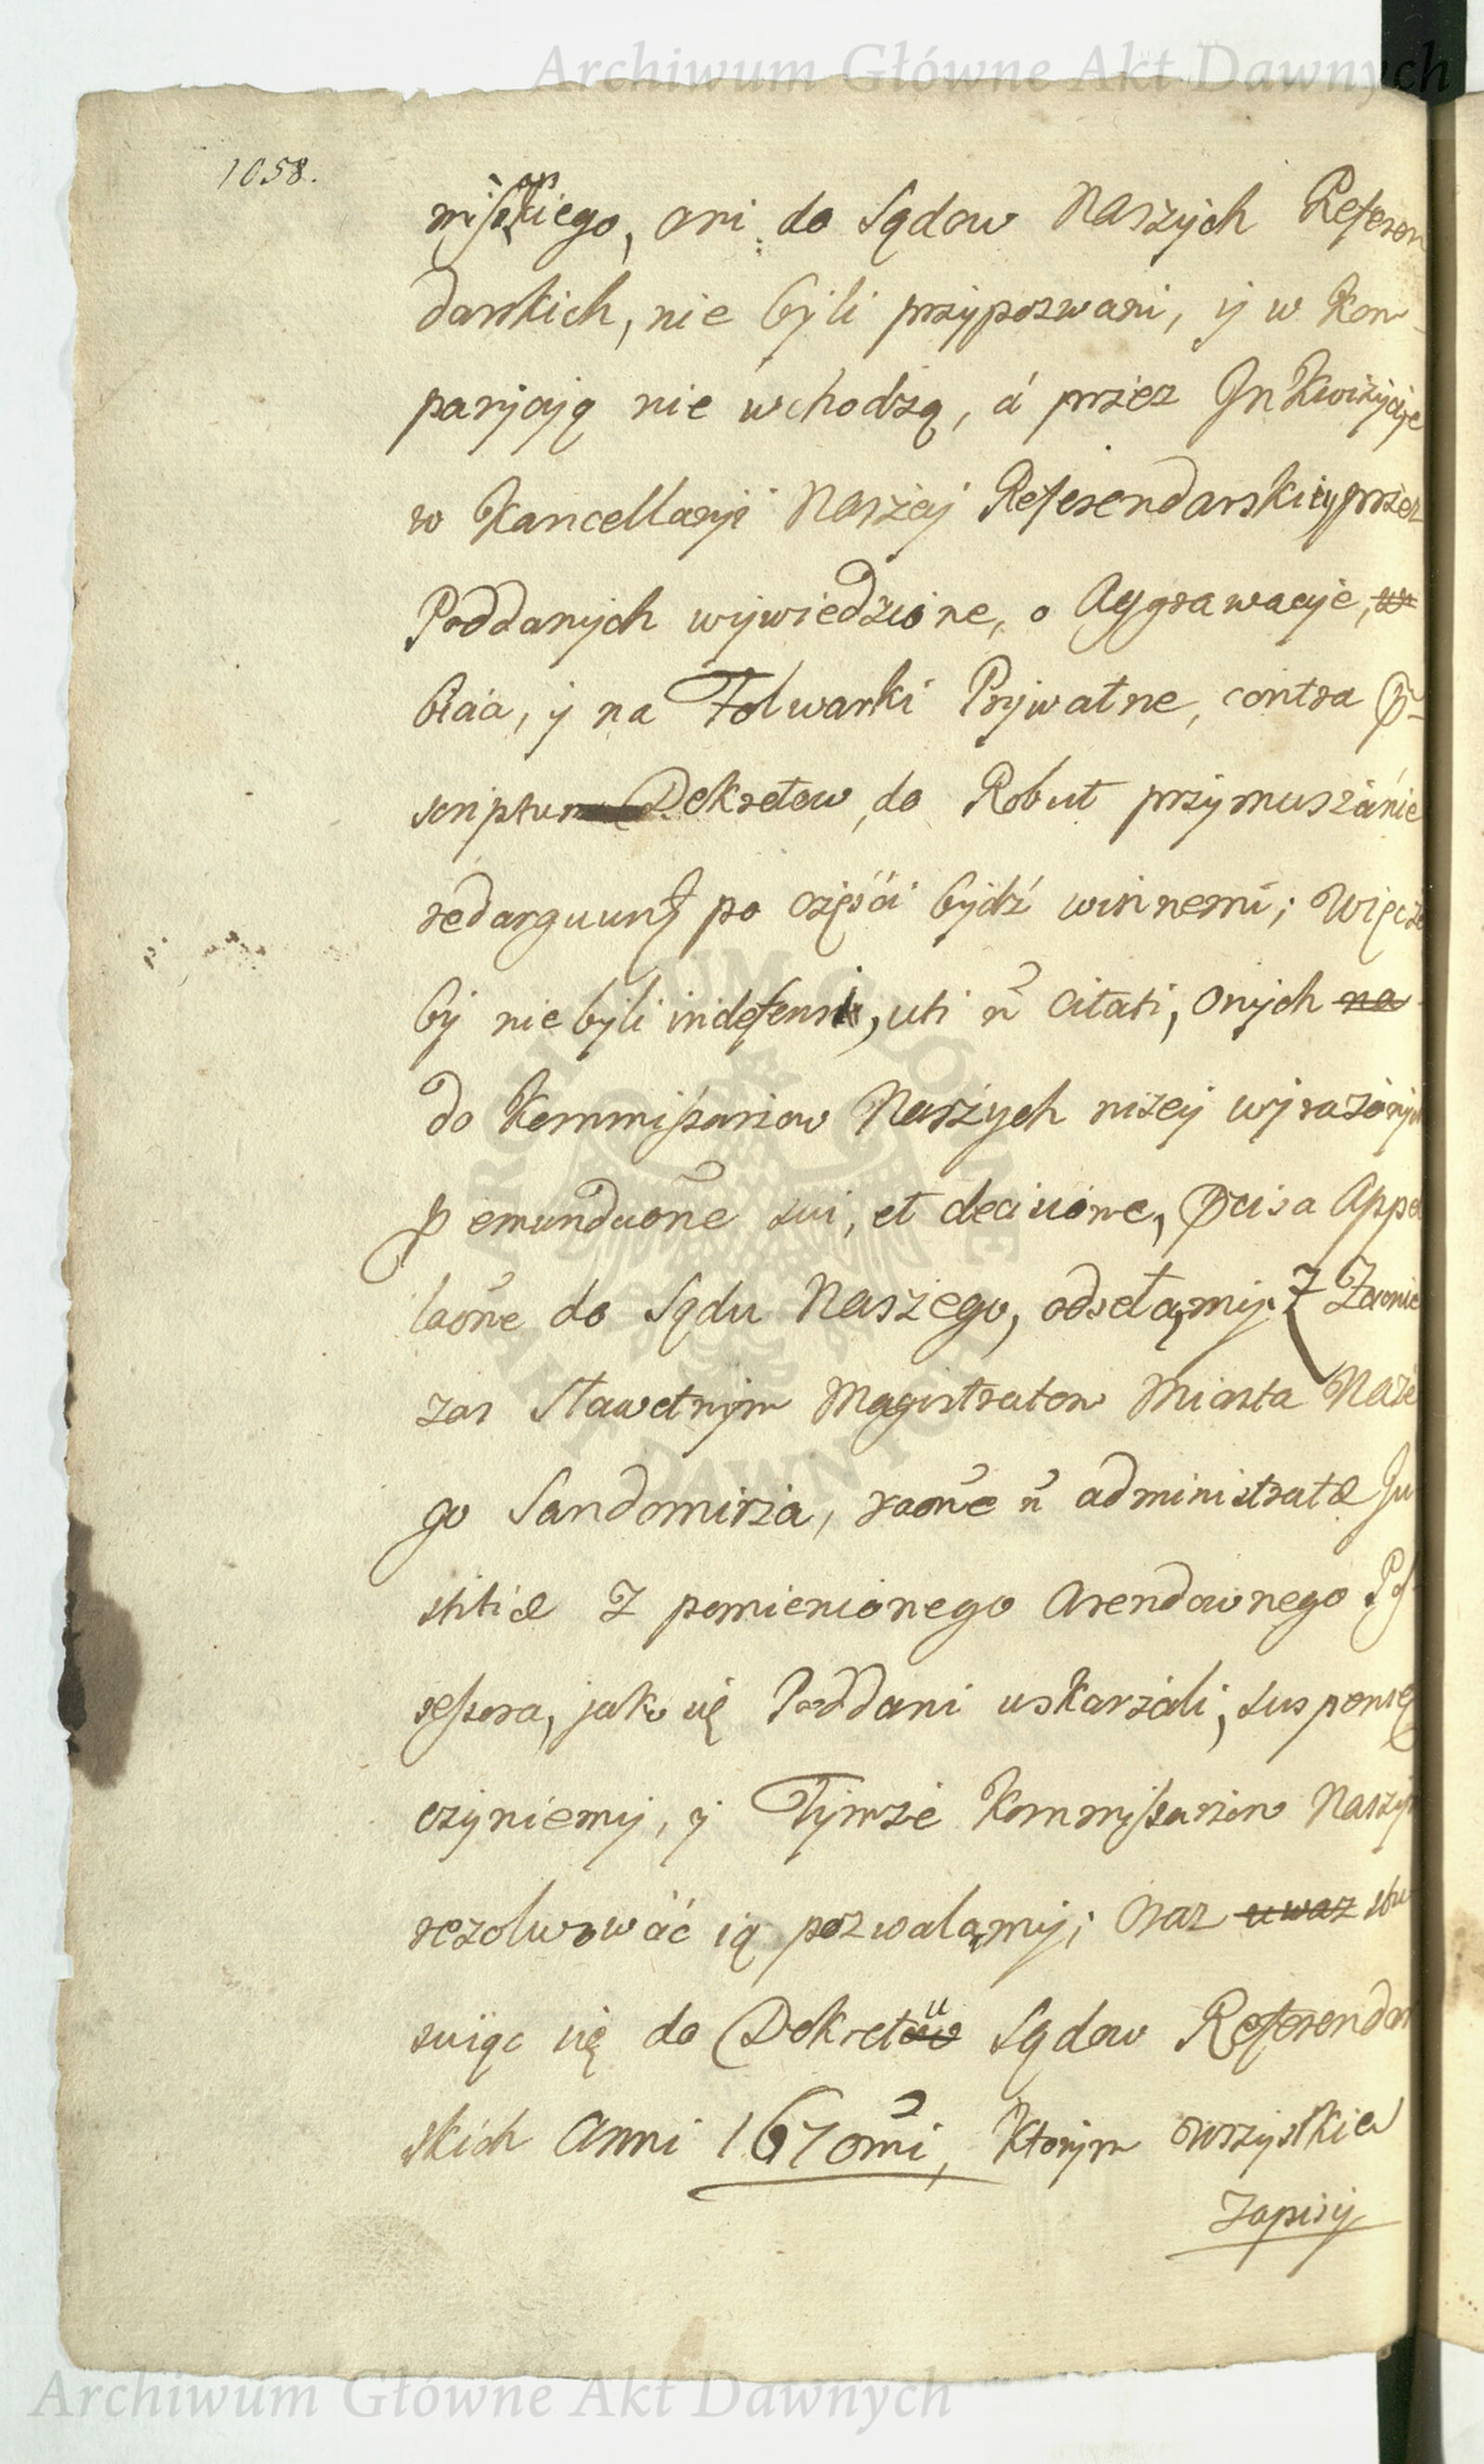 Archiwum Główne Akt Dawnych
1058.
ani do Sądow Naszych Referen
darskich, nie byli przypozwani, y w Kom-
paryają nie wchodzą, á przez Jnkwizycje
w Kancellaryi Naszey Referendarskiey przez
Poddanych wywiedzione, o Aggrawacye, w
biáa, y na Folwarki Prywatne, contra P-
scriptum Dekretow, do Robut przymuszánie
redarguunt po częśći bydź winnemi; Więcże
by nie byli indefensi, uti ñ citati, onych na
do Kommissarzow Naszych niżey wyrażonych
p emunduõne sui, et decisione, Pcisa Appel
laõne do Sądu Naszego, odsełamy. Z Zaniie
zas Sławetnym Magistratow Miasta Nasze
go Sandomirza, raõne ñ administratæ Ju
stitiæ Z pomienionego Arendownego Pos-
sessora, jako się Poddani uskarżali, suspensę
czyniemy, y Tymże Kommissarzow Naszym
rezolwować ią pozwalamy; Oraz uwaz stu
suiąc się do Dekretu Sądow Referendar
skich Anni 1670mi, Ktorym wszystkie
Zapisy
ARCHIWUM GŁÓWNE AKT DAWNYCH
Archiwum Główne Akt Dawnych